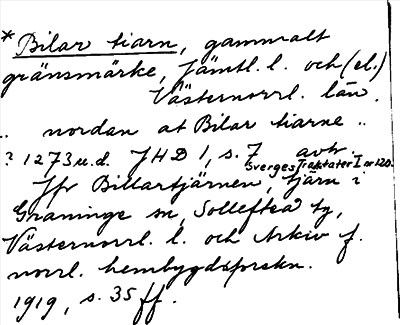 * Bilar tiarn, gammalt
gränsmärke, Jämtl. l. och (el.)
Västernorrl. län.
.. nordan at Bilar tiarne ..
? 1273 u.d. JHD 1, s. 7 avtr.
Sveriges Traktater I nr 120.
Jfr Billartjärnen, tjärn i
Graninge sn, Sollefteå tg,
Västernorrl. l. och Arkiv f.
norrl. hembygdsforskn.
1919, s. 35 ff.